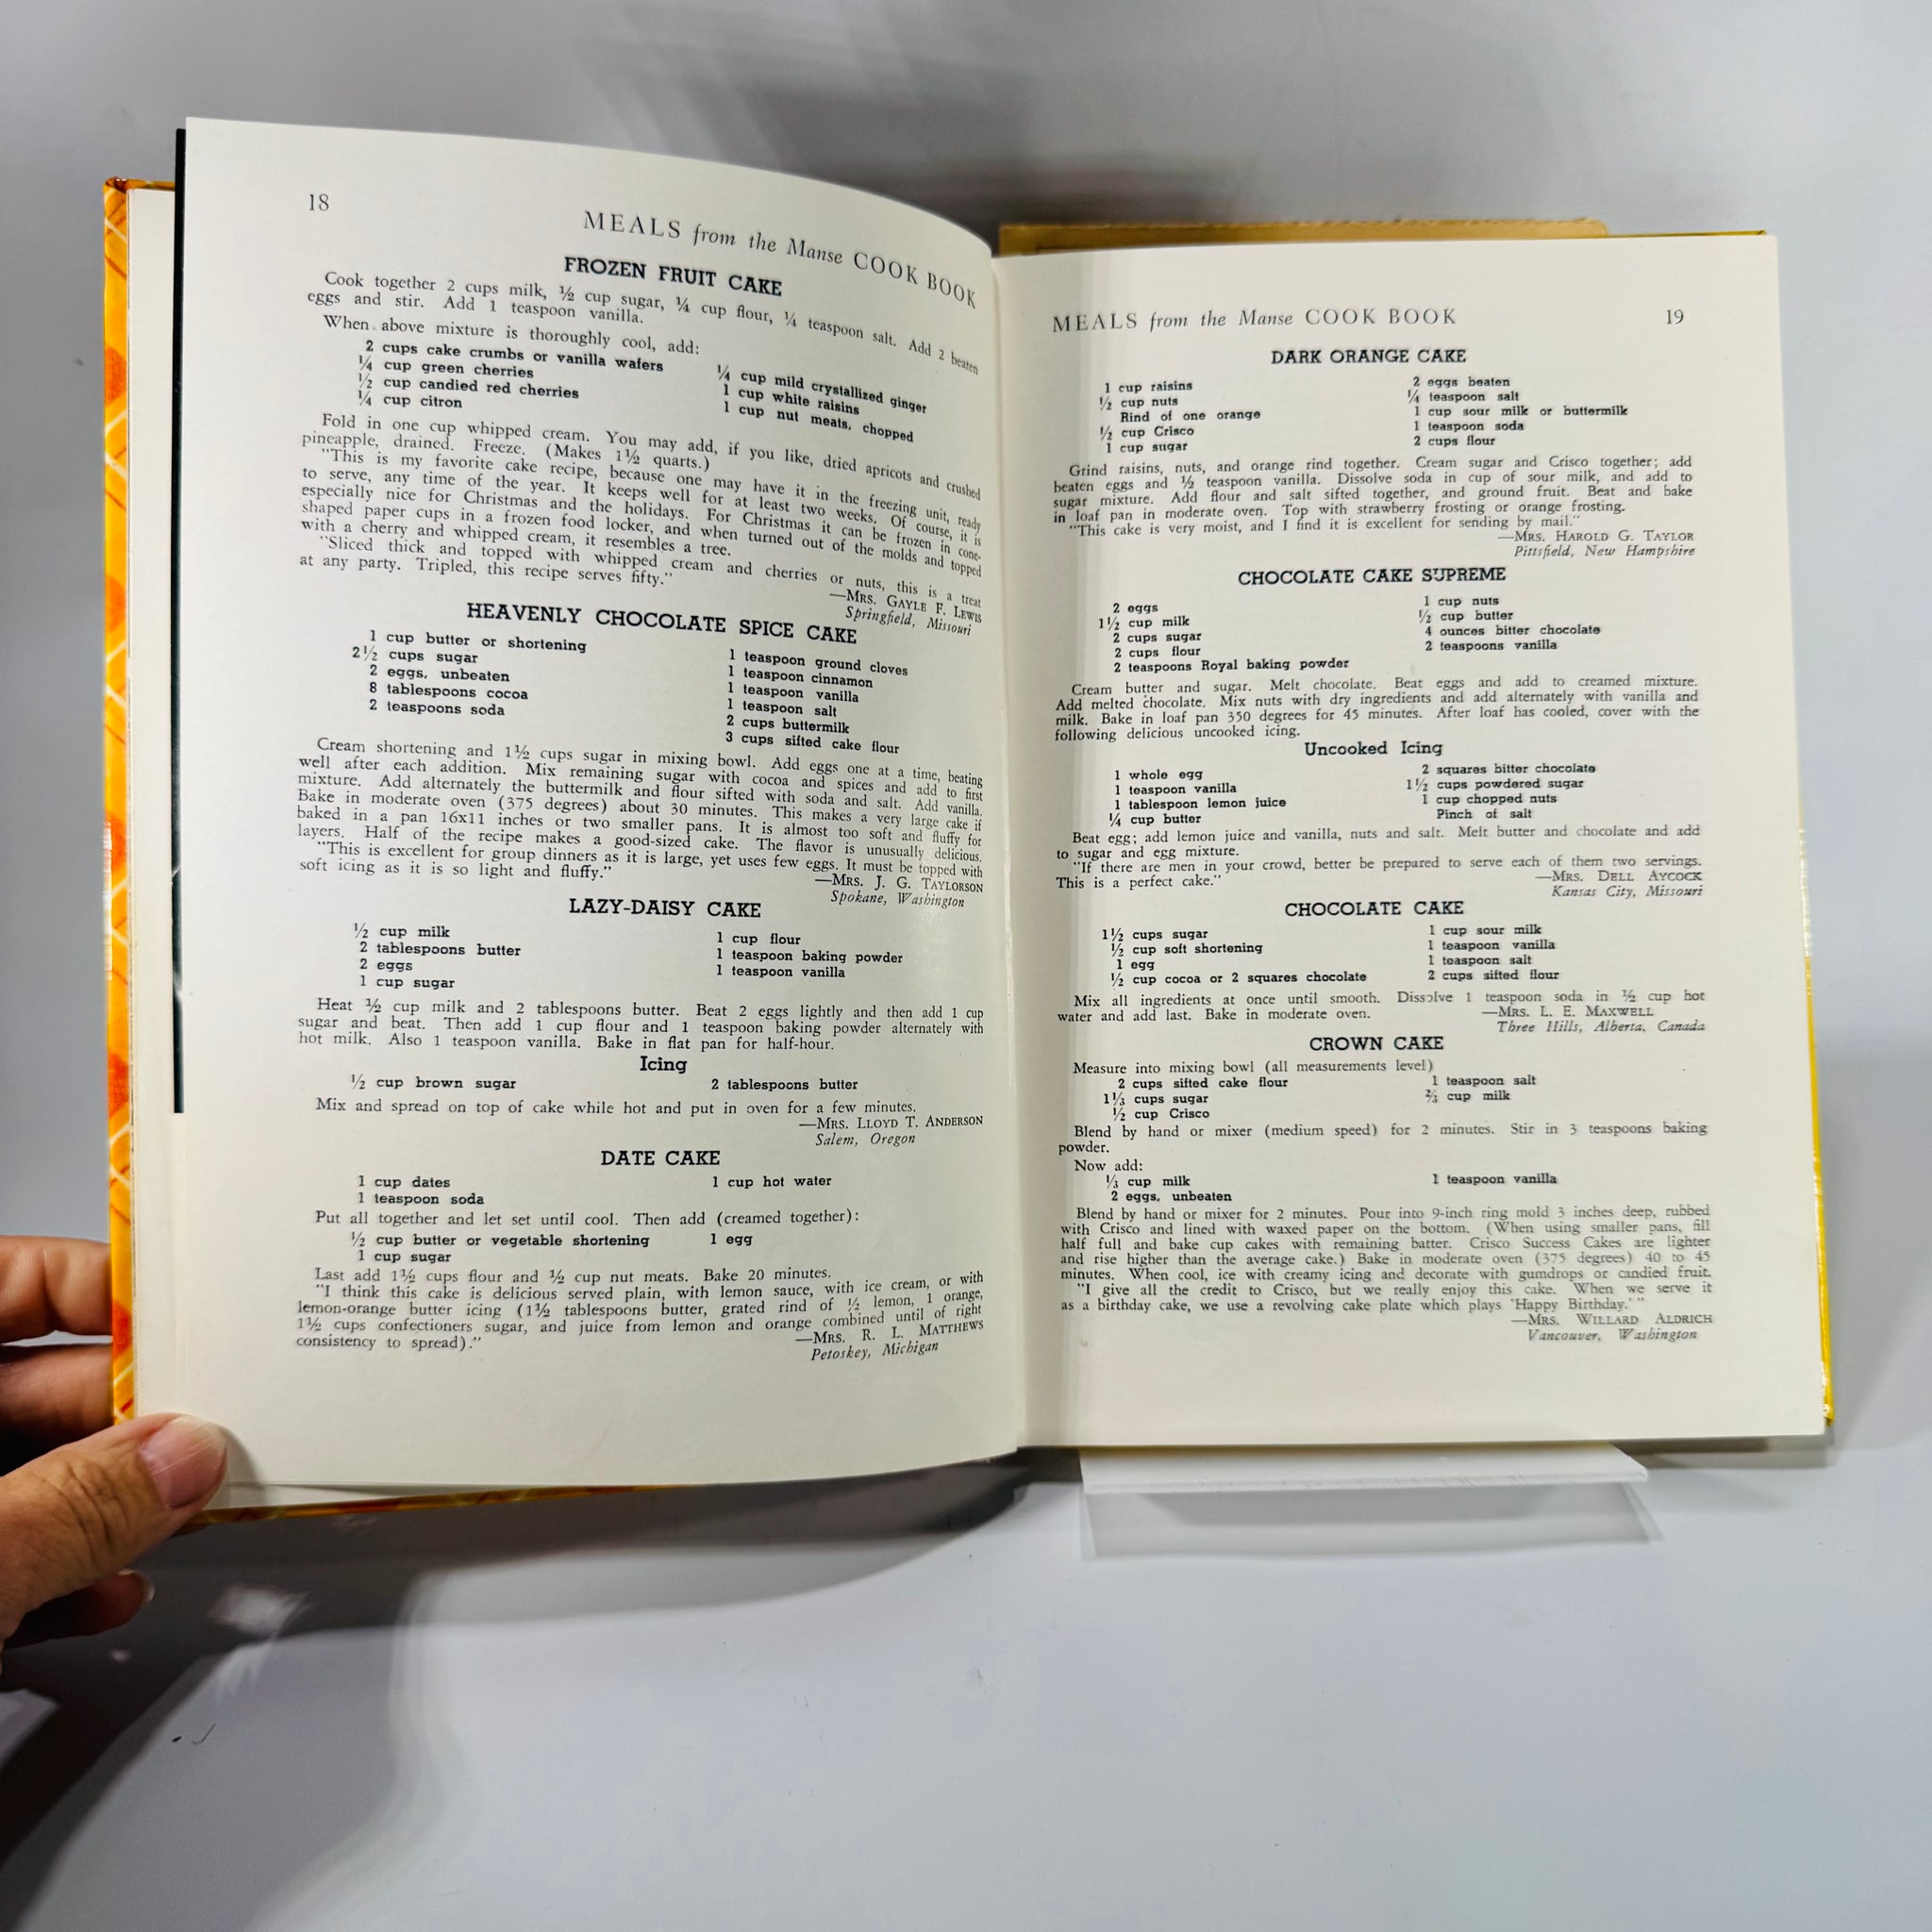 18
MEALS from the Manse COOK BOOK
FROZEN FRUIT CAKE
Cook together 2 cups milk, ½ cup sugar, ¼ cup flour, ¼ teaspoon salt. Add 2 beaten
eggs and stir. Add 1 teaspoon vanilla.
When above mixture is thoroughly cool, add:
2 cups cake crumbs or vanilla wafers
¼ cup green cherries
½ cup candied red cherries
¼ cup citron
¼ cup mild crystallized ginger
1 cup white raisins
1 cup nut meats, chopped
Fold in one cup whipped cream. You may add, if you like, dried apricots and crushed
pineapple, drained. Freeze. (Makes 1½ quarts.)
"This is my favorite cake recipe, because one may have it in the freezing unit, ready
to serve, any time of the year. It keeps well for at least two weeks. Of course, it is
especially nice for Christmas and the holidays. For Christmas it can be frozen in cone-
shaped paper cups in a frozen food locker, and when turned out of the molds and topped
with a cherry and whipped cream, it resembles a tree.
"Sliced thick and topped with whipped cream and cherries or nuts, this is a treat
at any party. Tripled, this recipe serves fifty."
—MRS. GAYLE F. LEWIS
Springfield, Missouri
HEAVENLY CHOCOLATE SPICE CAKE
1 cup butter or shortening
2½ cups sugar
2 eggs, unbeaten
8 tablespoons cocoa
2 teaspoons soda
1 teaspoon ground cloves
1 teaspoon cinnamon
1 teaspoon vanilla
1 teaspoon salt
2 cups buttermilk
3 cups sifted cake flour
Cream shortening and 1½ cups sugar in mixing bowl. Add eggs one at a time, beating
well after each addition. Mix remaining sugar with cocoa and spices and add to first
mixture. Add alternately the buttermilk and flour sifted with soda and salt. Add vanilla.
Bake in moderate oven (375 degrees) about 30 minutes. This makes a very large cake if
baked in a pan 16x11 inches or two smaller pans. It is almost too soft and fluffy for
layers. Half of the recipe makes a good-sized cake. The flavor is unusually delicious.
"This is excellent for group dinners as it is large, yet uses few eggs. It must be topped with
soft icing as it is so light and fluffy."
—MRS. J. G. TAYLORSON
Spokane, Washington
LAZY-DAISY CAKE
½ cup milk
2 tablespoons butter
2 eggs
1 cup sugar
1 cup flour
1 teaspoon baking powder
1 teaspoon vanilla
Heat ½ cup milk and 2 tablespoons butter. Beat 2 eggs lightly and then add 1 cup
sugar and beat. Then add 1 cup flour and 1 teaspoon baking powder alternately with
hot milk. Also 1 teaspoon vanilla. Bake in flat pan for half-hour.
Icing
½ cup brown sugar
2 tablespoons butter
Mix and spread on top of cake while hot and put in oven for a few minutes.
—MRS. LLOYD T. ANDERSON
Salem, Oregon
DATE CAKE
1 cup dates
1 teaspoon soda
1 cup hot water
Put all together and let set until cool. Then add (creamed together):
½ cup butter or vegetable shortening
1 cup sugar
1 egg
Last add 1½ cups flour and ½ cup nut meats. Bake 20 minutes.
"I think this cake is delicious served plain, with lemon sauce, with ice cream, or with
lemon-orange butter icing (1½ tablespoons butter, grated rind of ½ lemon, 1 orange,
1½ cups confectioners sugar, and juice from lemon and orange combined until of right
consistency to spread)."
—MRS. R. L. MATTHEWS
Petoskey, Michigan
MEALS from the Manse COOK BOOK
19
DARK ORANGE CAKE
1 cup raisins
½ cup nuts
Rind of one orange
½ cup Crisco
1 cup sugar
2 eggs beaten
¼ teaspoon salt
1 cup sour milk or buttermilk
1 teaspoon soda
2 cups flour
Grind raisins, nuts, and orange rind together. Cream sugar and Crisco together; add
beaten eggs and ½ teaspoon vanilla. Dissolve soda in cup of sour milk, and add to
sugar mixture. Add flour and salt sifted together, and ground fruit. Beat and bake
in loaf pan in moderate oven. Top with strawberry frosting or orange frosting.
"This cake is very moist, and I find it is excellent for sending by mail."
—MRS. HAROLD G. TAYLOR
Pittsfield, New Hampshire
CHOCOLATE CAKE SUPREME
2 eggs
1½ cup milk
2 cups sugar
2 cups flour
2 teaspoons Royal baking powder
1 cup nuts
½ cup butter
4 ounces bitter chocolate
2 teaspoons vanilla
Cream butter and sugar. Melt chocolate. Beat eggs and add to creamed mixture.
Add melted chocolate. Mix nuts with dry ingredients and add alternately with vanilla and
milk. Bake in loaf pan 350 degrees for 45 minutes. After loaf has cooled, cover with the
following delicious uncooked icing.
Uncooked Icing
1 whole egg
1 teaspoon vanilla
1 tablespoon lemon juice
¼ cup butter
2 squares bitter chocolate
1½ cups powdered sugar
1 cup chopped nuts
Pinch of salt
Beat egg; add lemon juice and vanilla, nuts and salt. Melt butter and chocolate and add
to sugar and egg mixture.
"If there are men in your crowd, better be prepared to serve each of them two servings.
This is a perfect cake."
—MRS. DELL AYCOCK
Kansas City, Missouri
CHOCOLATE CAKE
1½ cups sugar
½ cup soft shortening
1 egg
½ cup cocoa or 2 squares chocolate
1 cup sour milk
1 teaspoon vanilla
1 teaspoon salt
2 cups sifted flour
Mix all ingredients at once until smooth. Dissolve 1 teaspoon soda in ½ cup hot
water and add last. Bake in moderate oven.
—MRS. L. E. MAXWELL
Three Hills, Alberta, Canada
CROWN CAKE
Measure into mixing bowl (all measurements level)
2 cups sifted cake flour
1⅓ cups sugar
½ cup Crisco
1 teaspoon salt
⅔ cup milk
Blend by hand or mixer (medium speed) for 2 minutes. Stir in 3 teaspoons baking
powder.
Now add:
⅓ cup milk
2 eggs, unbeaten
1 teaspoon vanilla
Blend by hand or mixer for 2 minutes. Pour into 9-inch ring mold 3 inches deep, rubbed
with Crisco and lined with waxed paper on the bottom. (When using smaller pans, fill
half full and bake cup cakes with remaining batter. Crisco Success Cakes are lighter
and rise higher than the average cake.) Bake in moderate oven (375 degrees) 40 to 45
minutes. When cool, ice with creamy icing and decorate with gumdrops or candied fruit.
"I give all the credit to Crisco, but we really enjoy this cake. When we serve it
as a birthday cake, we use a revolving cake plate which plays 'Happy Birthday.' "
—MRS. WILLARD ALDRICH
Vancouver, Washington